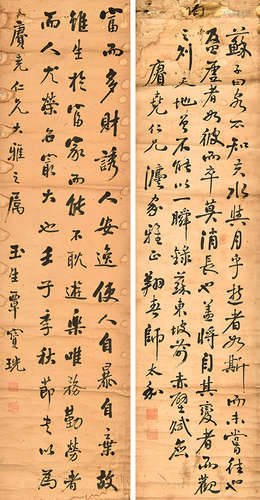 蘇子曰客亦知夫水與月乎逝者如斯而未嘗往也
盈虛者如彼而卒莫消長也蓋將自其變者而觀
之則天地曾不能以一瞬錄蘇東坡前赤壁賦應
賡堯仁兄灋家雅正
富而多財誘人安逸使人自暴自棄故
雖生於富家而能不耽逸樂唯務勤勞者
而人尤榮名最大也壬子季秋節書以為
賡堯仁兄大雅之屬 玉生覃寶珖